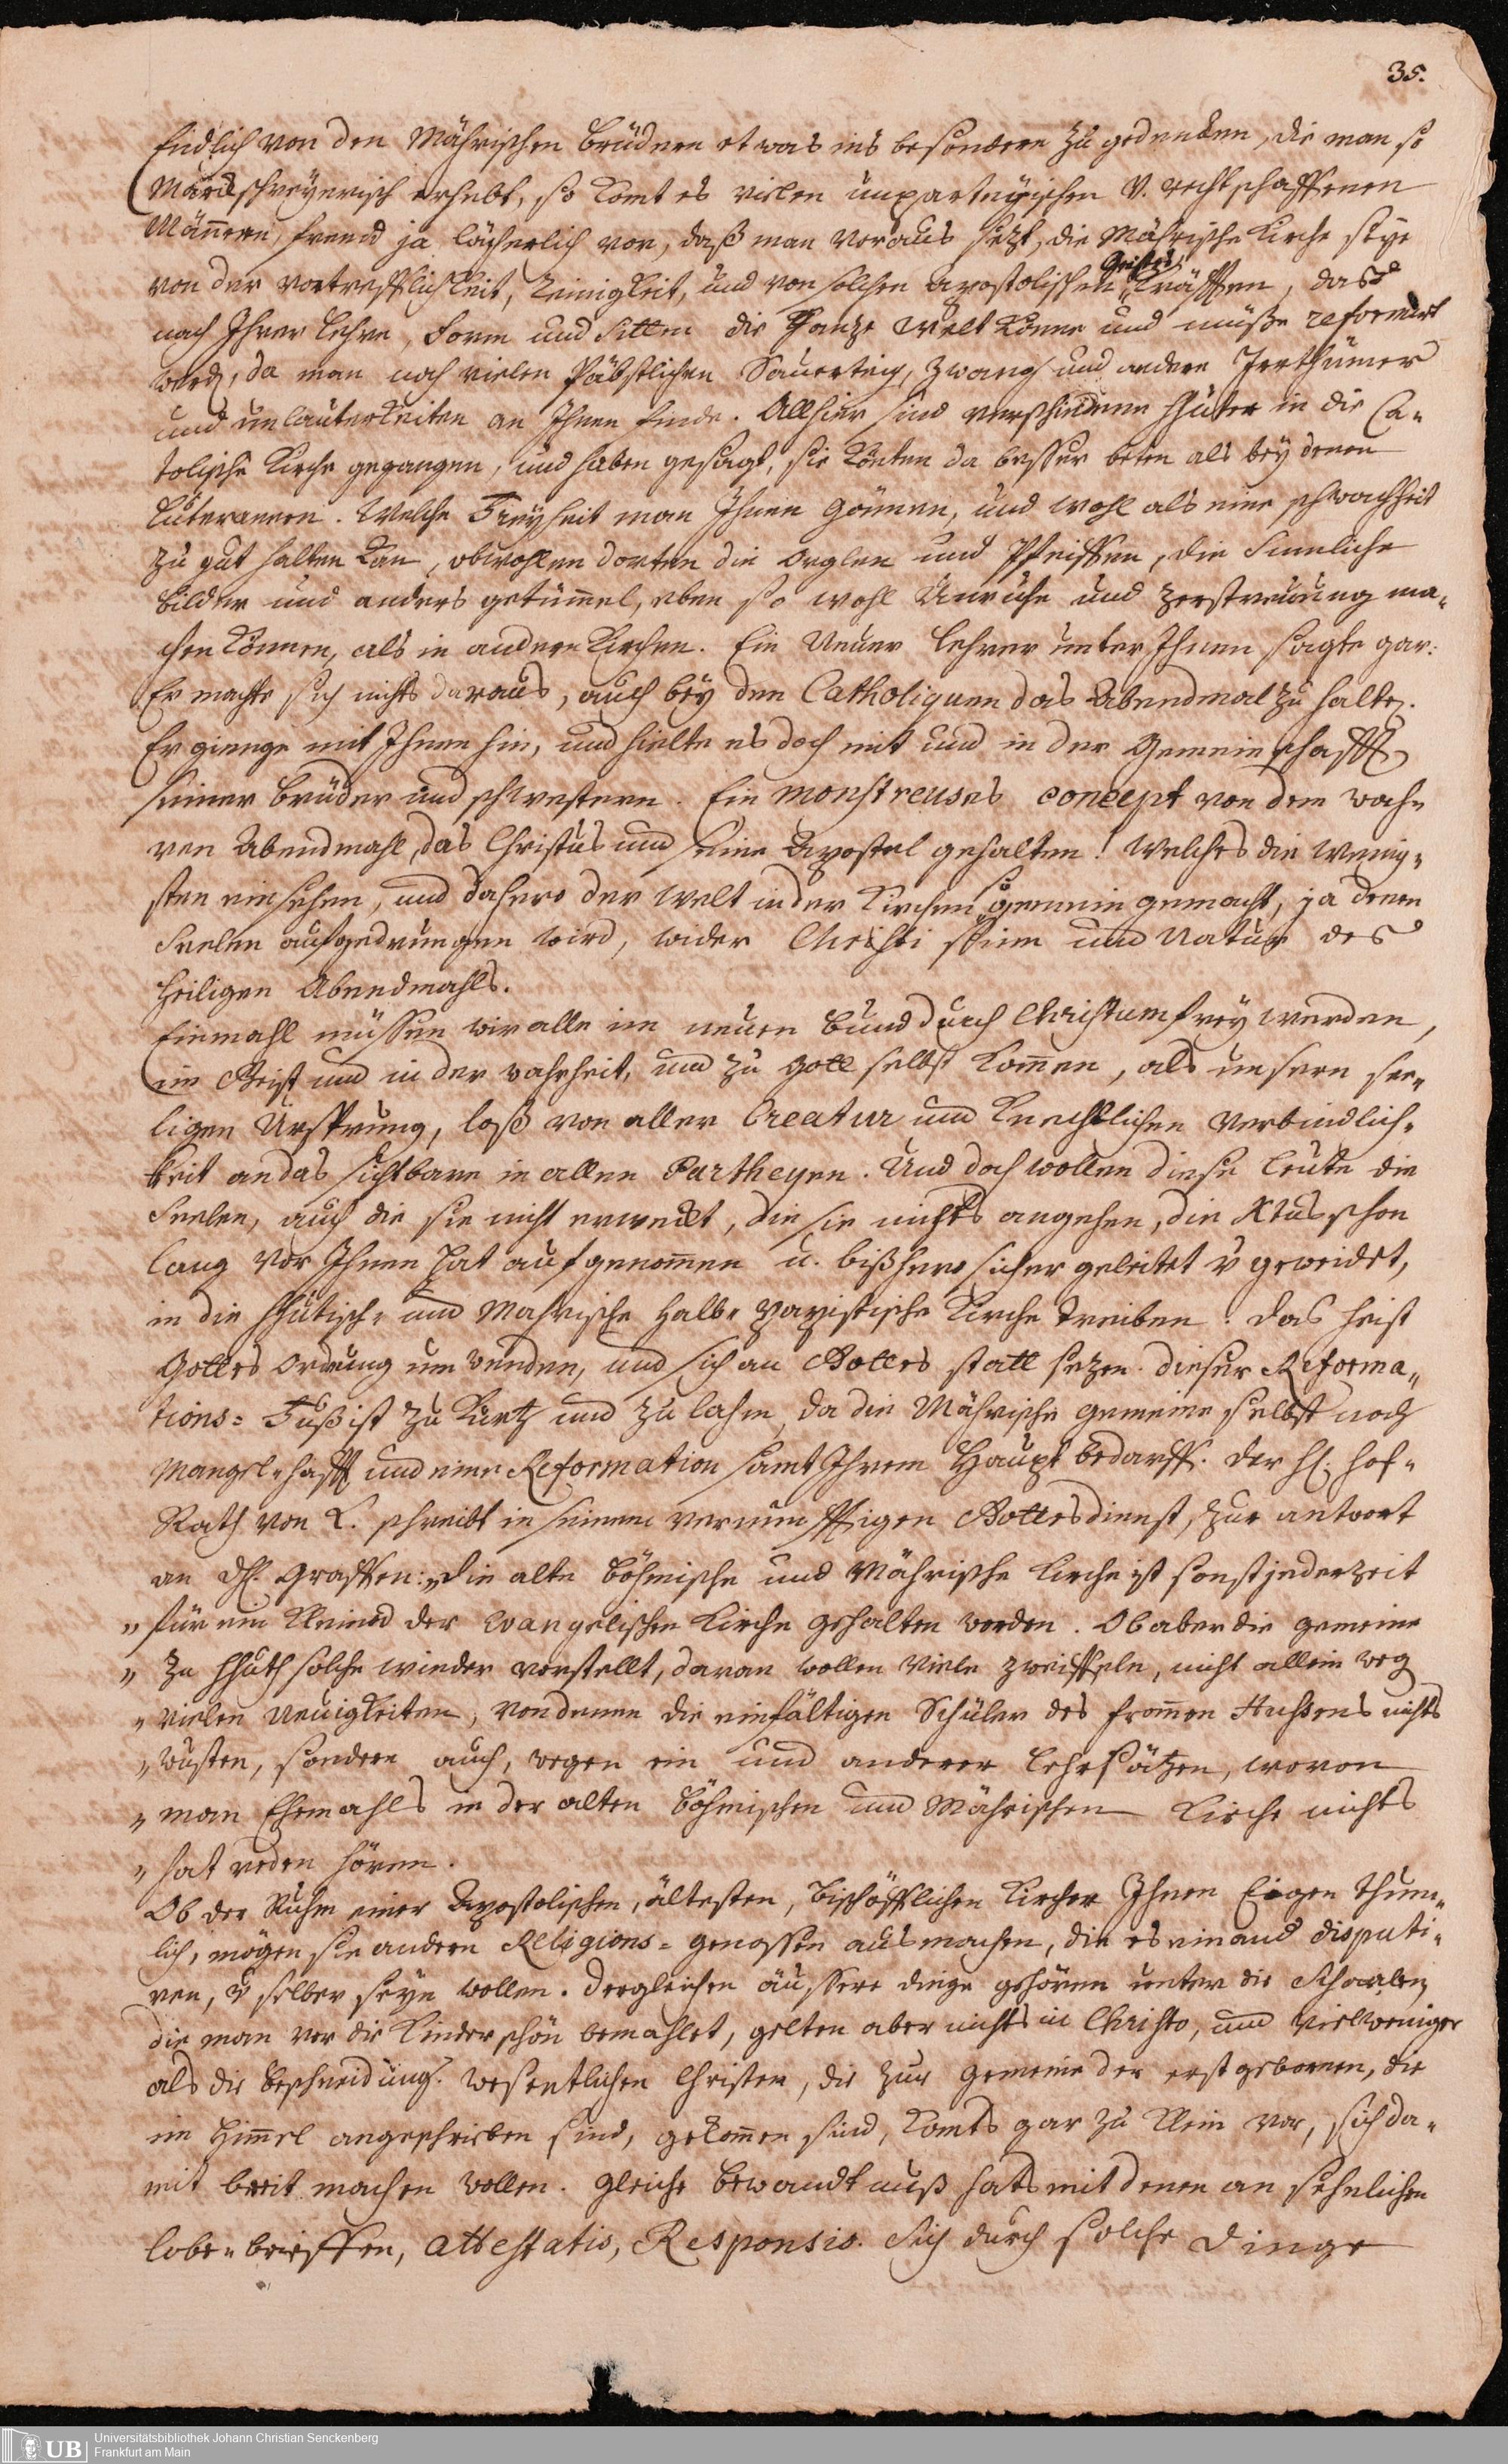 35.
Endlich von den Mährischen Brüdern etwas ins besondere zu gedencken, die man so
Marckschreyerisch erhebt, so komt es vielen unpartheyischen u. rechtschaffenen
Männern, fremd ja lächerlich vor, daß man voraus sezt, die Mährische Kirche seye
von der vortrefflichkeit, Reinigkeit, und von solchen Apostolischen Geistes Kräfften, das
nach Ihrer Lehre, Form und Sitten die Ganze Welt könne und müße reformirt
werd, da man noch vielen Päbstlichen Sauerteig, Zwang und andere Irrthümer
und unlauterkeiten an Ihnen finde. Allhier sind verschiedene HHuter in die Ca-
tolische Kirche gegangen, und haben gesagt, sie könten da besser beten als bey denen
Luteranern. Welche Freyheit man Ihnen gönnen, und wohl als eine schwachheit
zu gut halten kan, obwohlen dorten die Orglen und Pfeiffen, die Sinnliche
Bilder und anders getümmel, eben so wohl Unruhe und zerstreuung ma-
chen können, als in andern Kirchen. Ein Neuer Lehrer unter Ihnen sagte gar:
Er machte sich nichts daraus, auch bey den Catholiquen das Abendmal zu halten.
Er gienge mit Ihnen hin, und hielte es doch mit und in der Gemeinschafft
seiner Brüder und schwestern. Ein monstreuses concept von dem wah-
ren Abendmahl, das Christus und seine Apostel gehalten! Welches die wenig-
sten einsehen, und dahero der Welt in der Kirchen so gemein gemacht, ja denen
Seelen aufgedrungen wird, wider Christi sinn und Natur des
heiligen Abendmahls.
Einmahl müssen wir alle im neuen Bund durch Christum frey werden,
im Geist und in der wahrheit, und zu Gott selbst kommen, als unsern see-
ligen Ursprung, loß von aller Creatur und Knechtlichen Verbindlich-
keit an das sichtbare in allen Partheyen. Und doch wollen diese Leute die
Seelen, auch die sie nicht erweckt, die sie nichts angehen, die Xtus schon
lang vor Ihnen hat aufgenommen u. bißhero sicher geleitet u geweidet,
in die HHutisch- und Mahrische halb-papistische Kirche treiben. das heist
Gottes Ordnung umwenden, und sich an Gottes statt sezen. dieser Reforma-
tions-Fuß ist zu kurtz und zu lahm, da die Mährische Gemeine selbst noch
Mangel-hafft und einer Reformation samt Ihrem Haupt bedarff. Der H. Hof-
Rath von L. schreibt in seinem vernunfftigen Gottesdienst, zur antwort
an H. Graffen: „die alte Böhmische und Mährische Kirche ist sonst jederzeit
„für ein Kleinod der evangelischen Kirche gehalten worden. Ob aber die Gemeine
„zu HHuth solche wieder vorstellt, daran wollen Viele zweiffeln, nicht allein weg
„vielen Neuigkeiten, von denen die einfältigen Schüler des frommen Hussens nichts
„wusten, sondern auch, wegen ein und anderer Lehrsätzen, wovon
„man Ehemahls in der alten Böhmischen und Mährischen Kirche nichts
„hat reden hören.
Ob der Ruhm einer Apostolischen, ältesten, Bischöfflichen Kirche Ihnen Eigenthum-
lich, mögen sie andern Religions-genossen ausmachen, die es einand disputi-
ren, u selber seyn wollen. Dergleichen äussere dinge gehören unter die Schaalen,
die man vor die Kinder schön bemahlet, gelten aber nichts in Christo, und viel weniger
als die Beschneidung. Wesentlichen Christen, die zur Gemeine der erstgebornen, die
im Himmel angeschrieben sind, gekommen sind, komts gar zu klein vor, sich da-
mit breit machen wollen. Gleiche Bewandtnuß hats mit denen ansehnlichen
Lobe-brieffen, Attestatis, Responsis. Sich durch solche Dinge
UB
Universitätsbibliothek Johann Christian Senckenberg
Frankfurt am Main